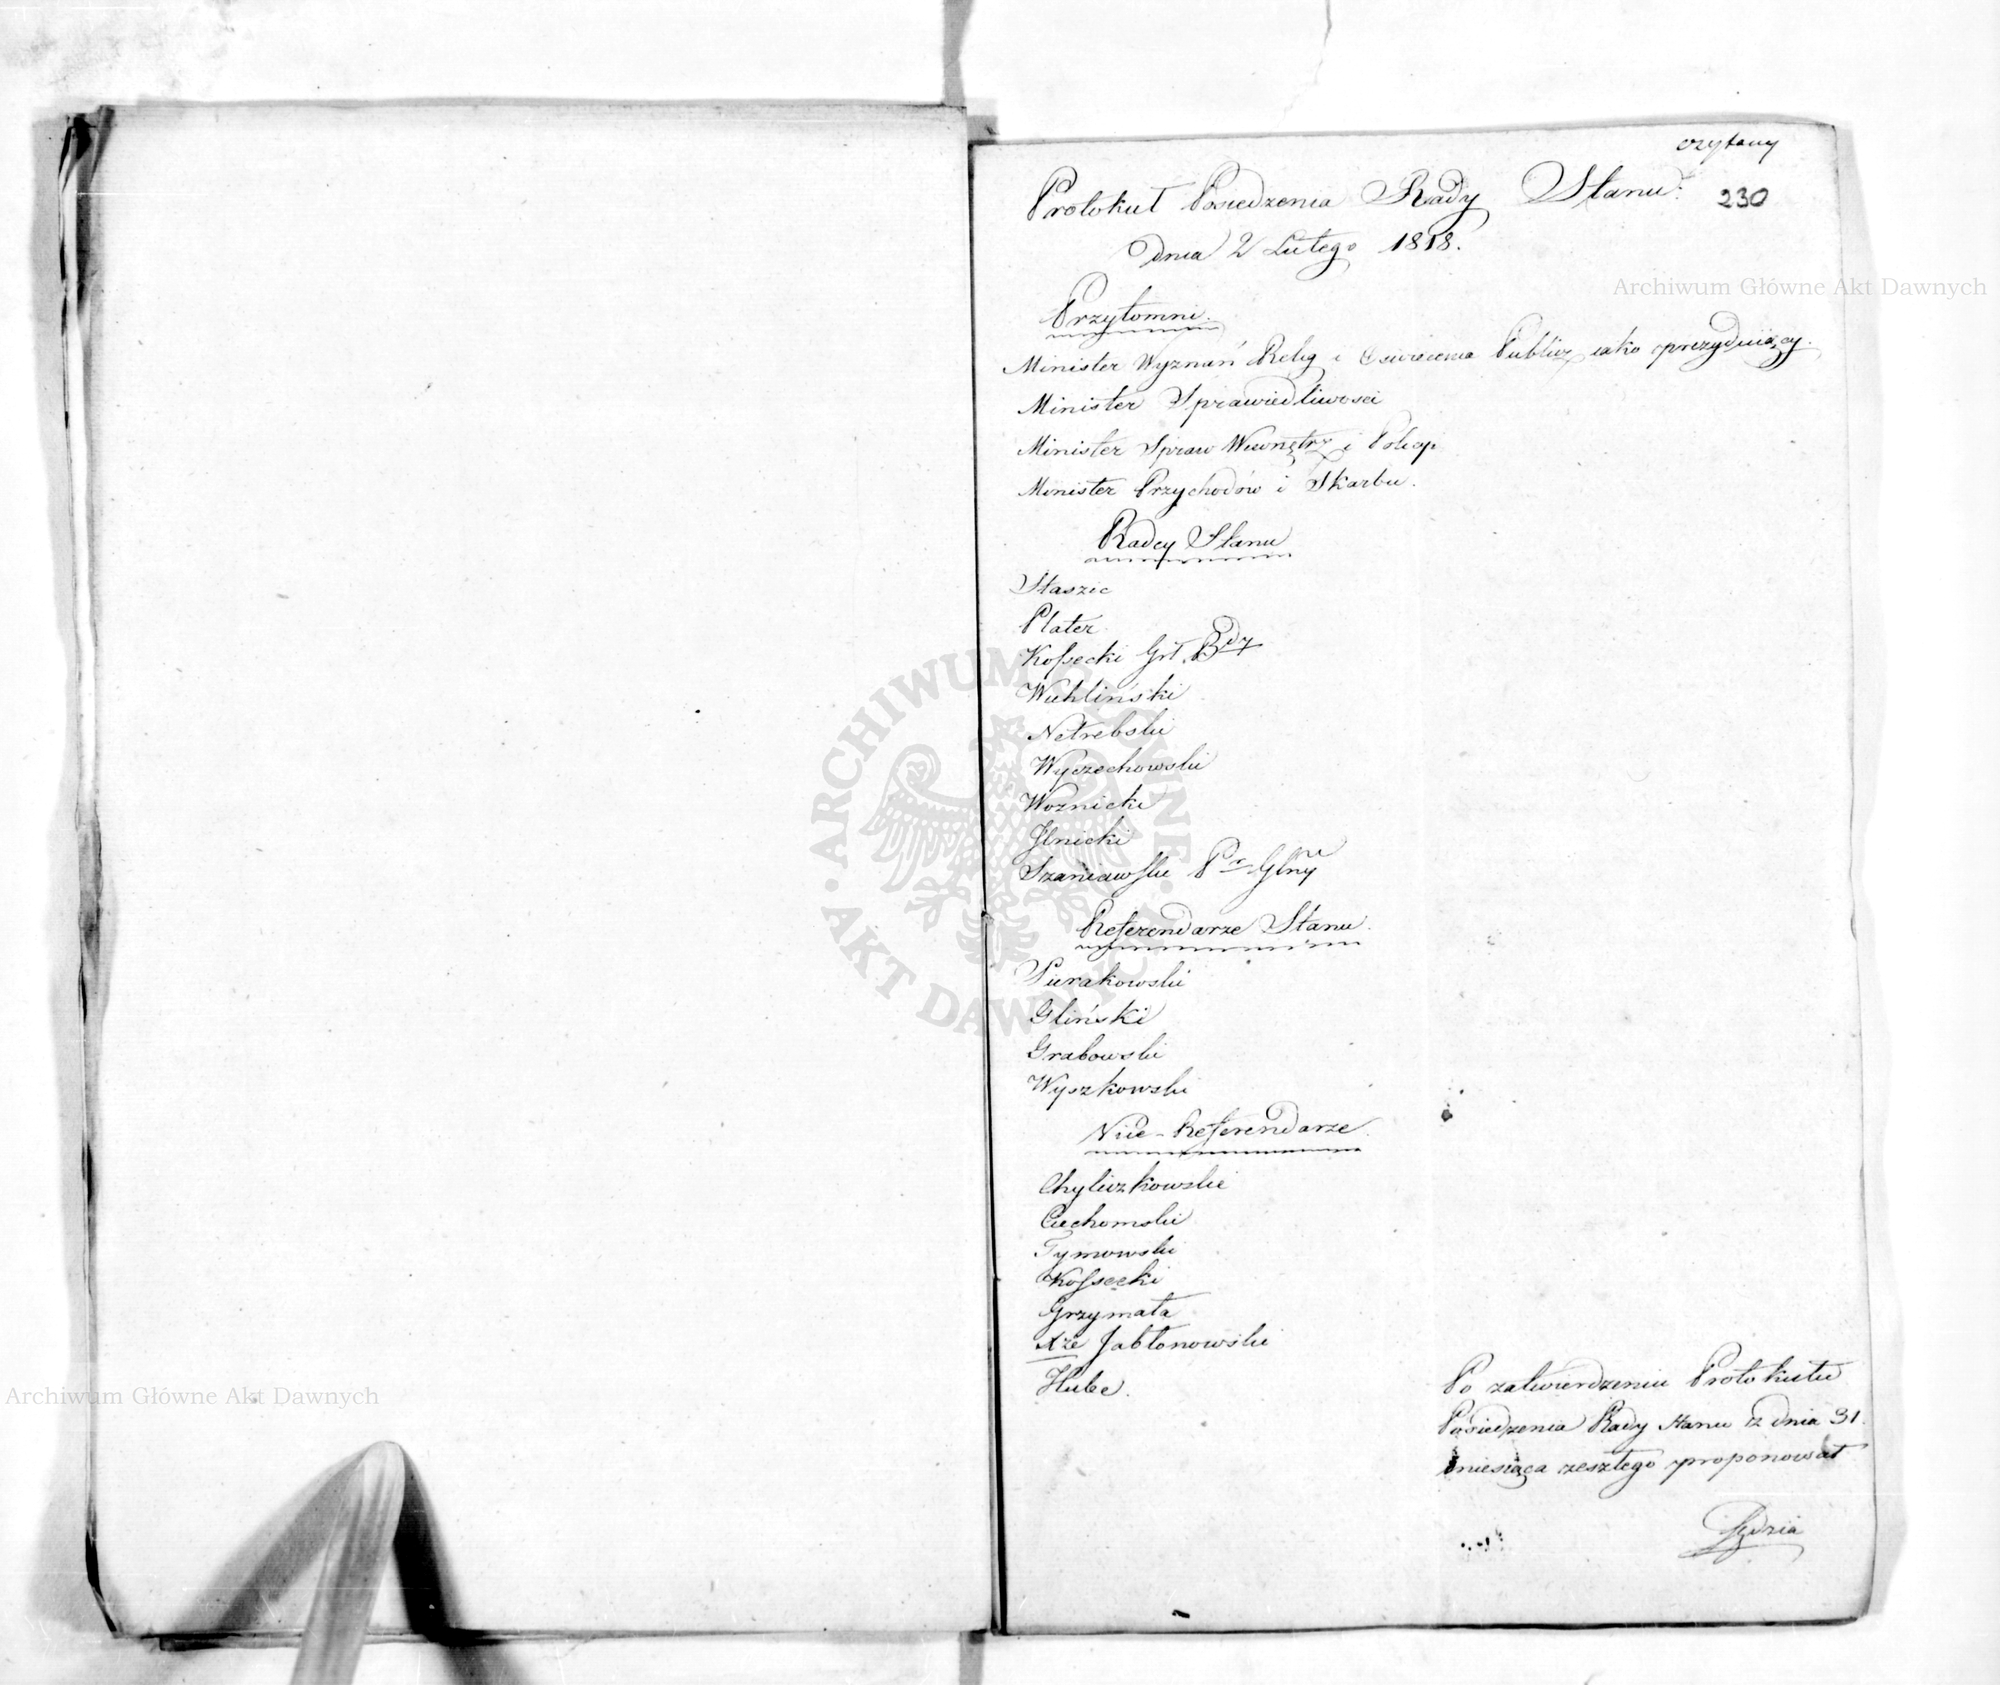 czytany
Protokuł Posiedzenia Rady Stanu.
230
dnia 2 Lutego 1818.
Archiwum Główne Akt Dawnych
Przytomni.
Minister Wyznań Relig i Oswiecenia Publicz iako prezyduiący.
Minister Sprawiedliwosci
Minister Spraw Wewnętrz i Policyi
Minister Przychodów i Skarbu.
Radcy Stanu
Staszic
Plater.
Kossecki Grł. Bdy
Wichliński
Netrebski
Wyczechowski
Woznicki
Jlnicki
Szaniawski Pr Glny
Referendarze Stanu.
Sierakowski
Gliński
Grabowski
Wyszkowski
Vice-Referendarze.
Chyliczkowski
Ciechomski
Tymowski
Kossecki
Grzymała
Xże Jabłonowski
Hube.
Po zatwierdzeniu Protokułu
Posiedzenia Rady Stanu z dnia 31.
miesiąca zeszłego proponował
Sędzia
ARCHIWUM GŁÓWNE AKT DAWNYCH
Archiwum Główne Akt Dawnych